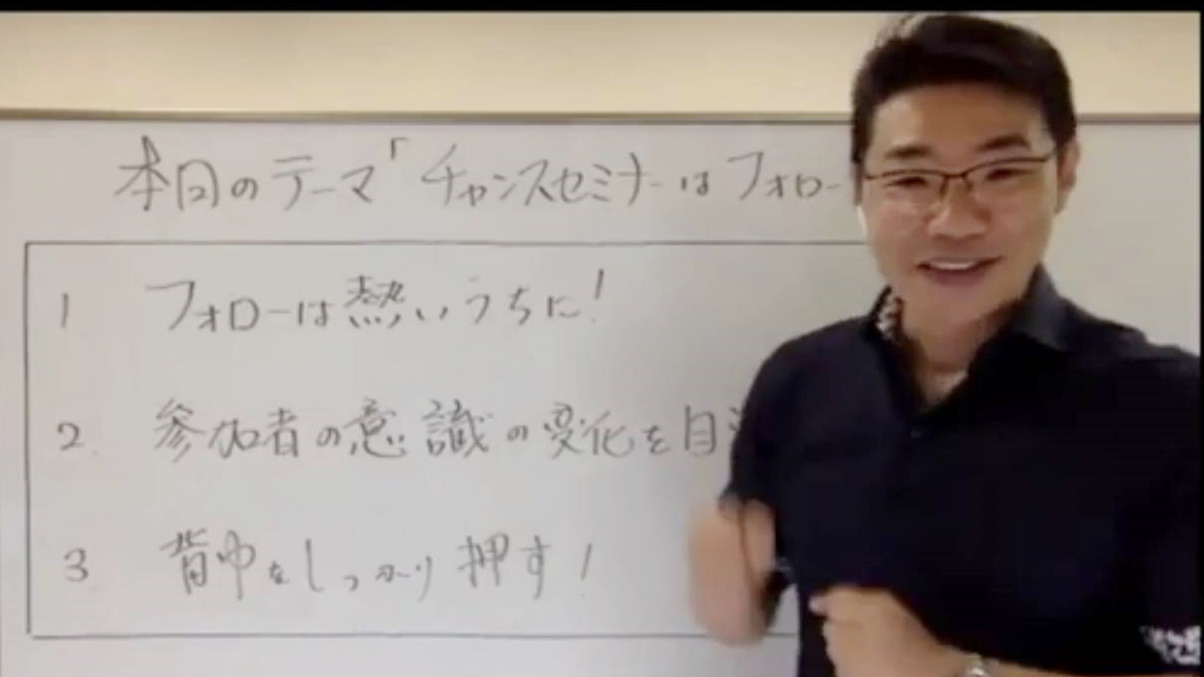 本日のテーマ「チャンスセミナーはフォロー
1 フォローは熱いうちに!
2. 参加者の意識の変化を目
3. 背中をしっかり押す!